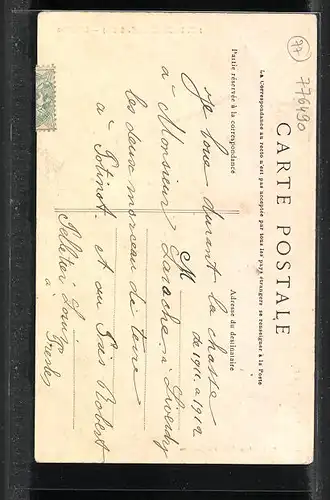 77
776490
CARTE POSTALE
La Correspondance au recto n'est pas acceptée par tous les pays étrangers se renseigner à la Poste
Partie réservée à la correspondance
Adresse du destinataire
Je loue durant la chasse
de 1911 a 1912
M
a Monsieur Larache a
les deux morceau de terre
a et au Robert
Pelletier Louis
a